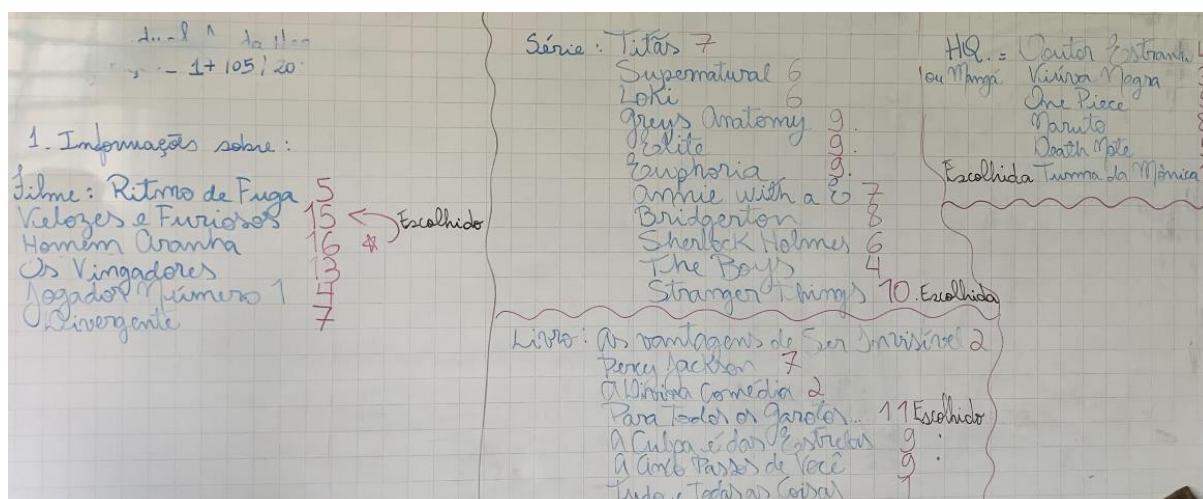 1+105; 20
1. Informações sobre:
Filme: Ritmo de Fuga 5
Velozes e Furiosos 15
Escolhido
Homem Aranha 16 *
Os Vingadores 13
Jogador Número 1 4
Divergente 7
Série: Titãs 7
Supernatural 6
Loki 6
Greys Anatomy 9.
Elite 9.
Euphoria 9.
Annie with a E 7
Bridgerton 8
Sherlock Holmes 6
The Boys 4
Stranger Things 10. Escolhida
Livro: As vantagens de Ser Invisível 2
Percy Jackson 7
A Divina Comédia 2
Para Todos os Garotos... 11 Escolhido
A Culpa é das Estrelas 9.
A Cinco Passos de Você 9.
Tudo e Todas as Coisas
HQ.: Doutor Estranho
ou Mangá Viúva Negra
One Piece
Naruto
Death Note
Escolhida Turma da Mônica